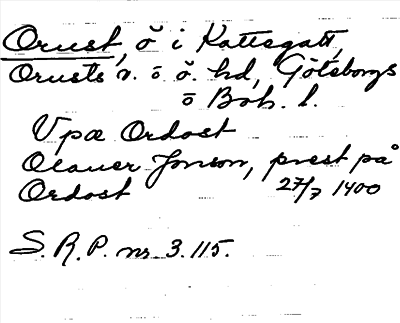 Orust, ö i Kattegatt,
Orusts v. o ö. hd, Göteborgs
o Boh. l.
Vpæ Ordost
Olauer Jonson, prest på
Ordost 27/7 1400
S.R.P. nr 3.115.